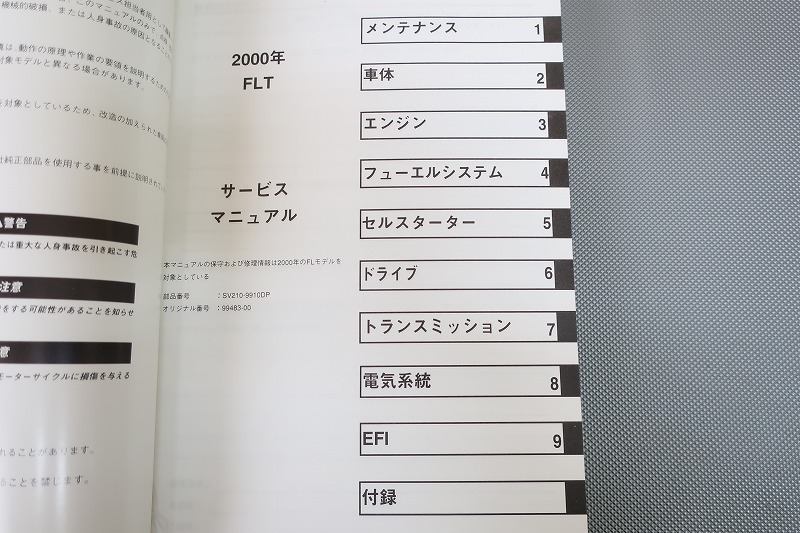 ス担当者用として
機械的破損、または人身事故の原因となること
動作の原理や作業の要領を説明するため
対象モデルと異なる場合があります。
を対象としているため、改造の加えられた
純正部品を使用する事を前提に説明され
警告
たは重大な人身事故を引き起こす危
注意
をする可能性があることを知らせ
意
モーターサイクルに損傷を与える
れることがあります。
ることを禁じます。
2000年
FLT
サービス
マニュアル
本マニュアルの保守および修理情報は2000年のFLモデルを
対象としている
部品番号 :SV210-9910DP
オリジナル番号 :99483-00
メンテナンス 1
車体 2
エンジン 3
フューエルシステム 4
セルスターター 5
ドライブ 6
トランスミッション 7
電気系統 8
EFI 9
付録